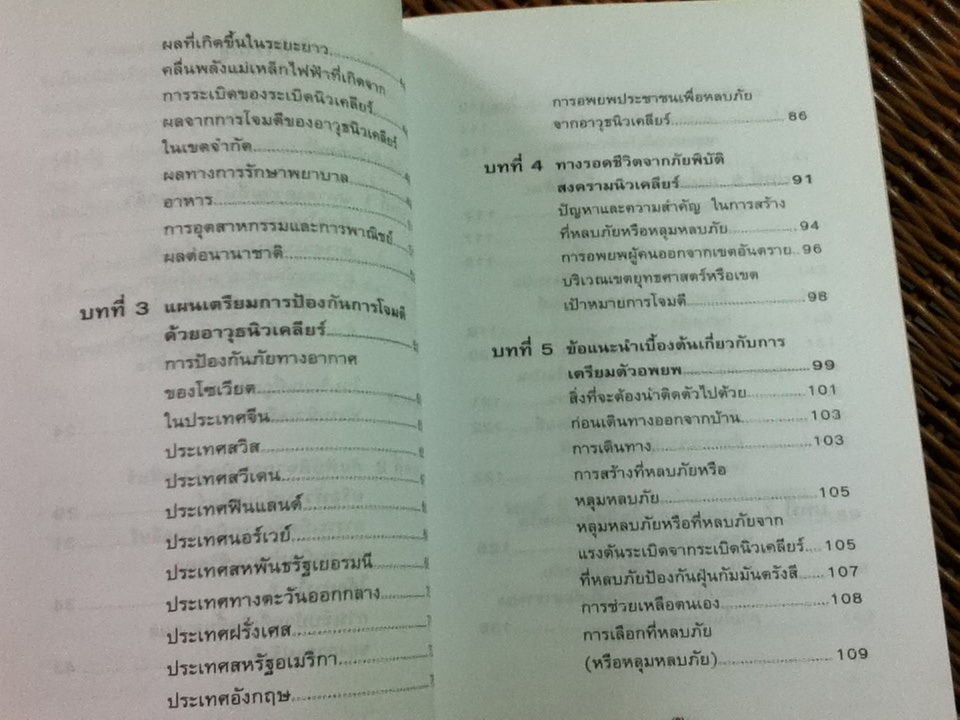 ผลที่เกิดขึ้นในระยะยาว
คลื่นพลังแม่เหล็กไฟฟ้าที่เกิดจาก
การระเบิดของระเบิดนิวเคลียร์
ผลจากการโจมตีของอาวุธนิวเคลียร์
ในเขตจำกัด
ผลทางการรักษาพยาบาล
อาหาร
การอุตสาหกรรมและการพาณิชย์
ผลต่อนานาชาติ
บทที่ 3 แผนเตรียมการป้องกันการโจมตี
ด้วยอาวุธนิวเคลียร์
การป้องกันภัยทางอากาศ
ของโซเวียต
ในประเทศจีน
ประเทศสวิส
ประเทศสวีเดน
ประเทศฟินแลนด์
ประเทศนอร์เวย์
ประเทศสหพันธรัฐเยอรมนี
ประเทศทางตะวันออกกลาง
ประเทศฝรั่งเศส
ประเทศสหรัฐอเมริกา
ประเทศอังกฤษ
การอพยพประชาชนเพื่อหลบภัย
จากอาวุธนิวเคลียร์ 86
บทที่ 4 ทางรอดชีวิตจากภัยพิบัติ
สงครามนิวเคลียร์ 91
ปัญหาและความสำคัญ ในการสร้าง
ที่หลบภัยหรือหลุมหลบภัย 94
การอพยพผู้คนออกจากเขตอันตราย 96
บริเวณเขตยุทธศาสตร์หรือเขต
เป้าหมายการโจมตี 98
บทที่ 5 ข้อแนะนำเบื้องต้นเกี่ยวกับการ
เตรียมตัวอพยพ 99
สิ่งที่จะต้องนำติดตัวไปด้วย 101
ก่อนเดินทางออกจากบ้าน 103
การเดินทาง 103
การสร้างที่หลบภัยหรือ
หลุมหลบภัย 105
หลุมหลบภัยหรือที่หลบภัยจาก
แรงดันระเบิดจากระเบิดนิวเคลียร์ 105
ที่หลบภัยป้องกันฝุ่นกัมมันตรังสี 107
การช่วยเหลือตนเอง 108
การเลือกที่หลบภัย
(หรือหลุมหลบภัย) 109